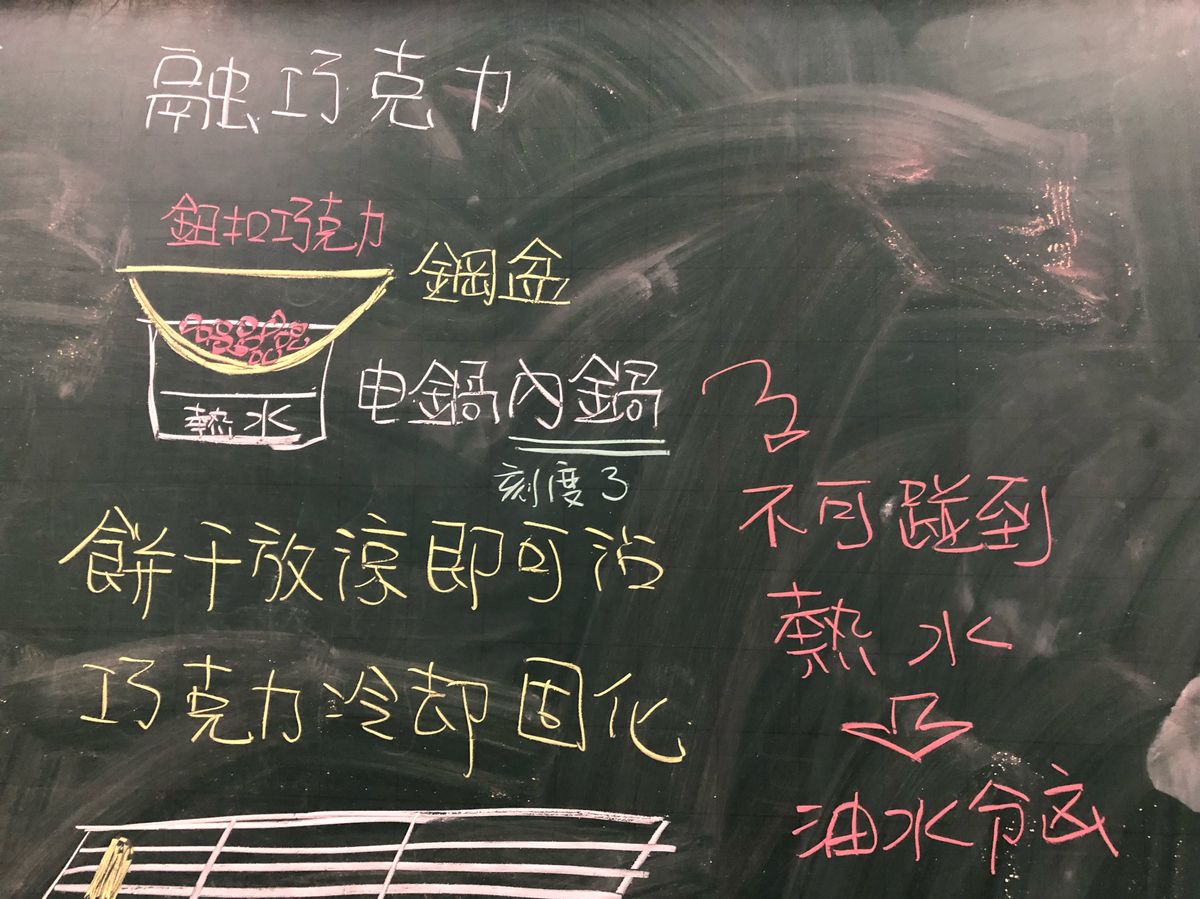 融巧克力
鈕扣巧克力
鋼盆
熱水
电鍋內鍋
刻度3
餅干放涼即可沾
巧克力冷却固化
不可踫到
熱水
油水分